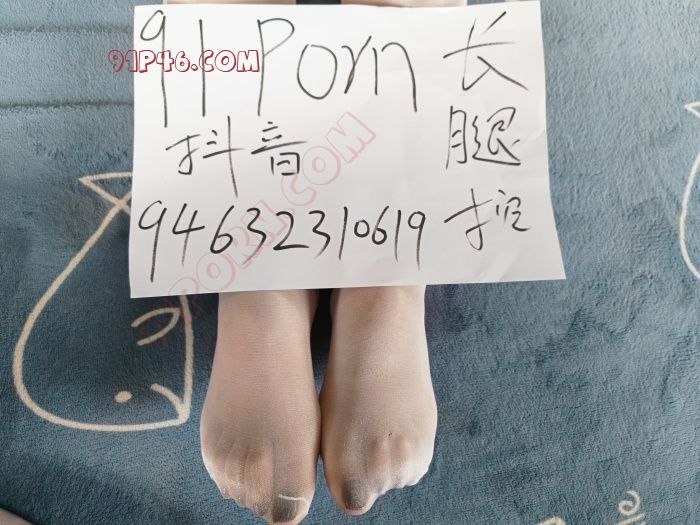 91Porn
抖音
94632310619
长
腿
控
91P46.COM
91PORN.COM